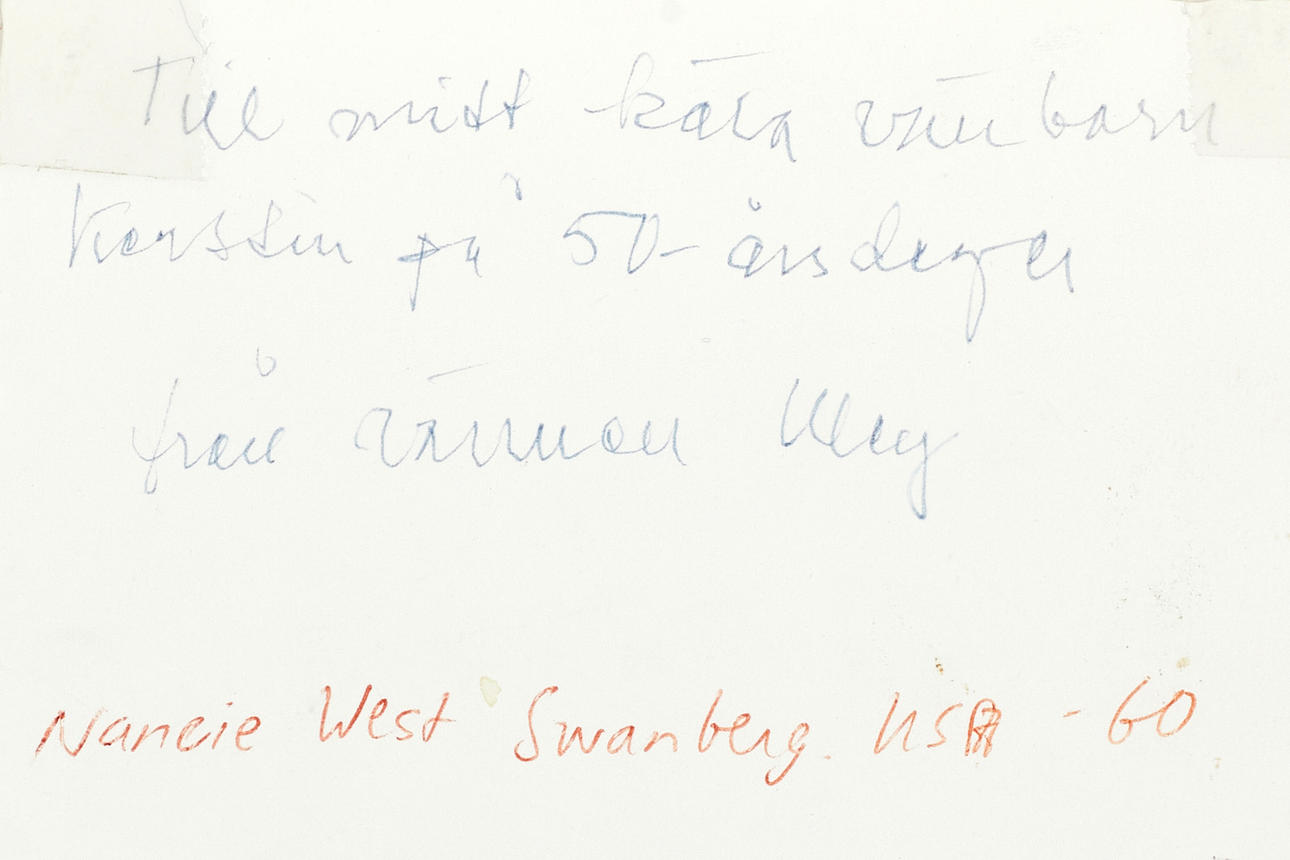 Till mitt kära vänbarn
Kerstin på 50-årsdagen
från vännen
Nancie West Swanberg. USA - 60